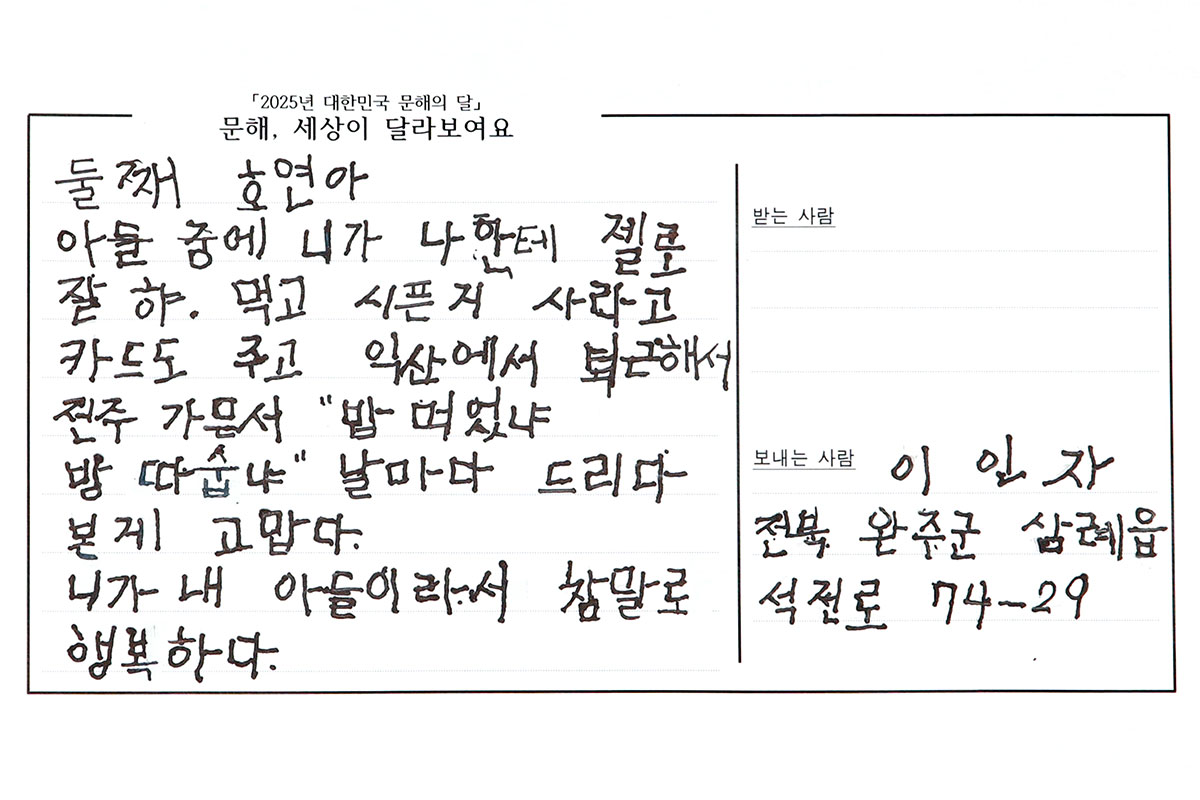 「2025년 대한민국 문해의 달」
문해, 세상이 달라보여요
둘째 호연아
아들 중에 니가 나한테 젤로
잘 햐. 먹고 시픈거 사라고
카드도 주고 익산에서 퇴근해서
전주 가믄서 "밥 머었냐
방 따숩냐" 날마다 드리다
본게 고맙다.
니가 내 아들이라서 참말로
행복하다.
받는 사람
보내는 사람 이 인 자
전북 완주군 삼례읍
석전로 74-29